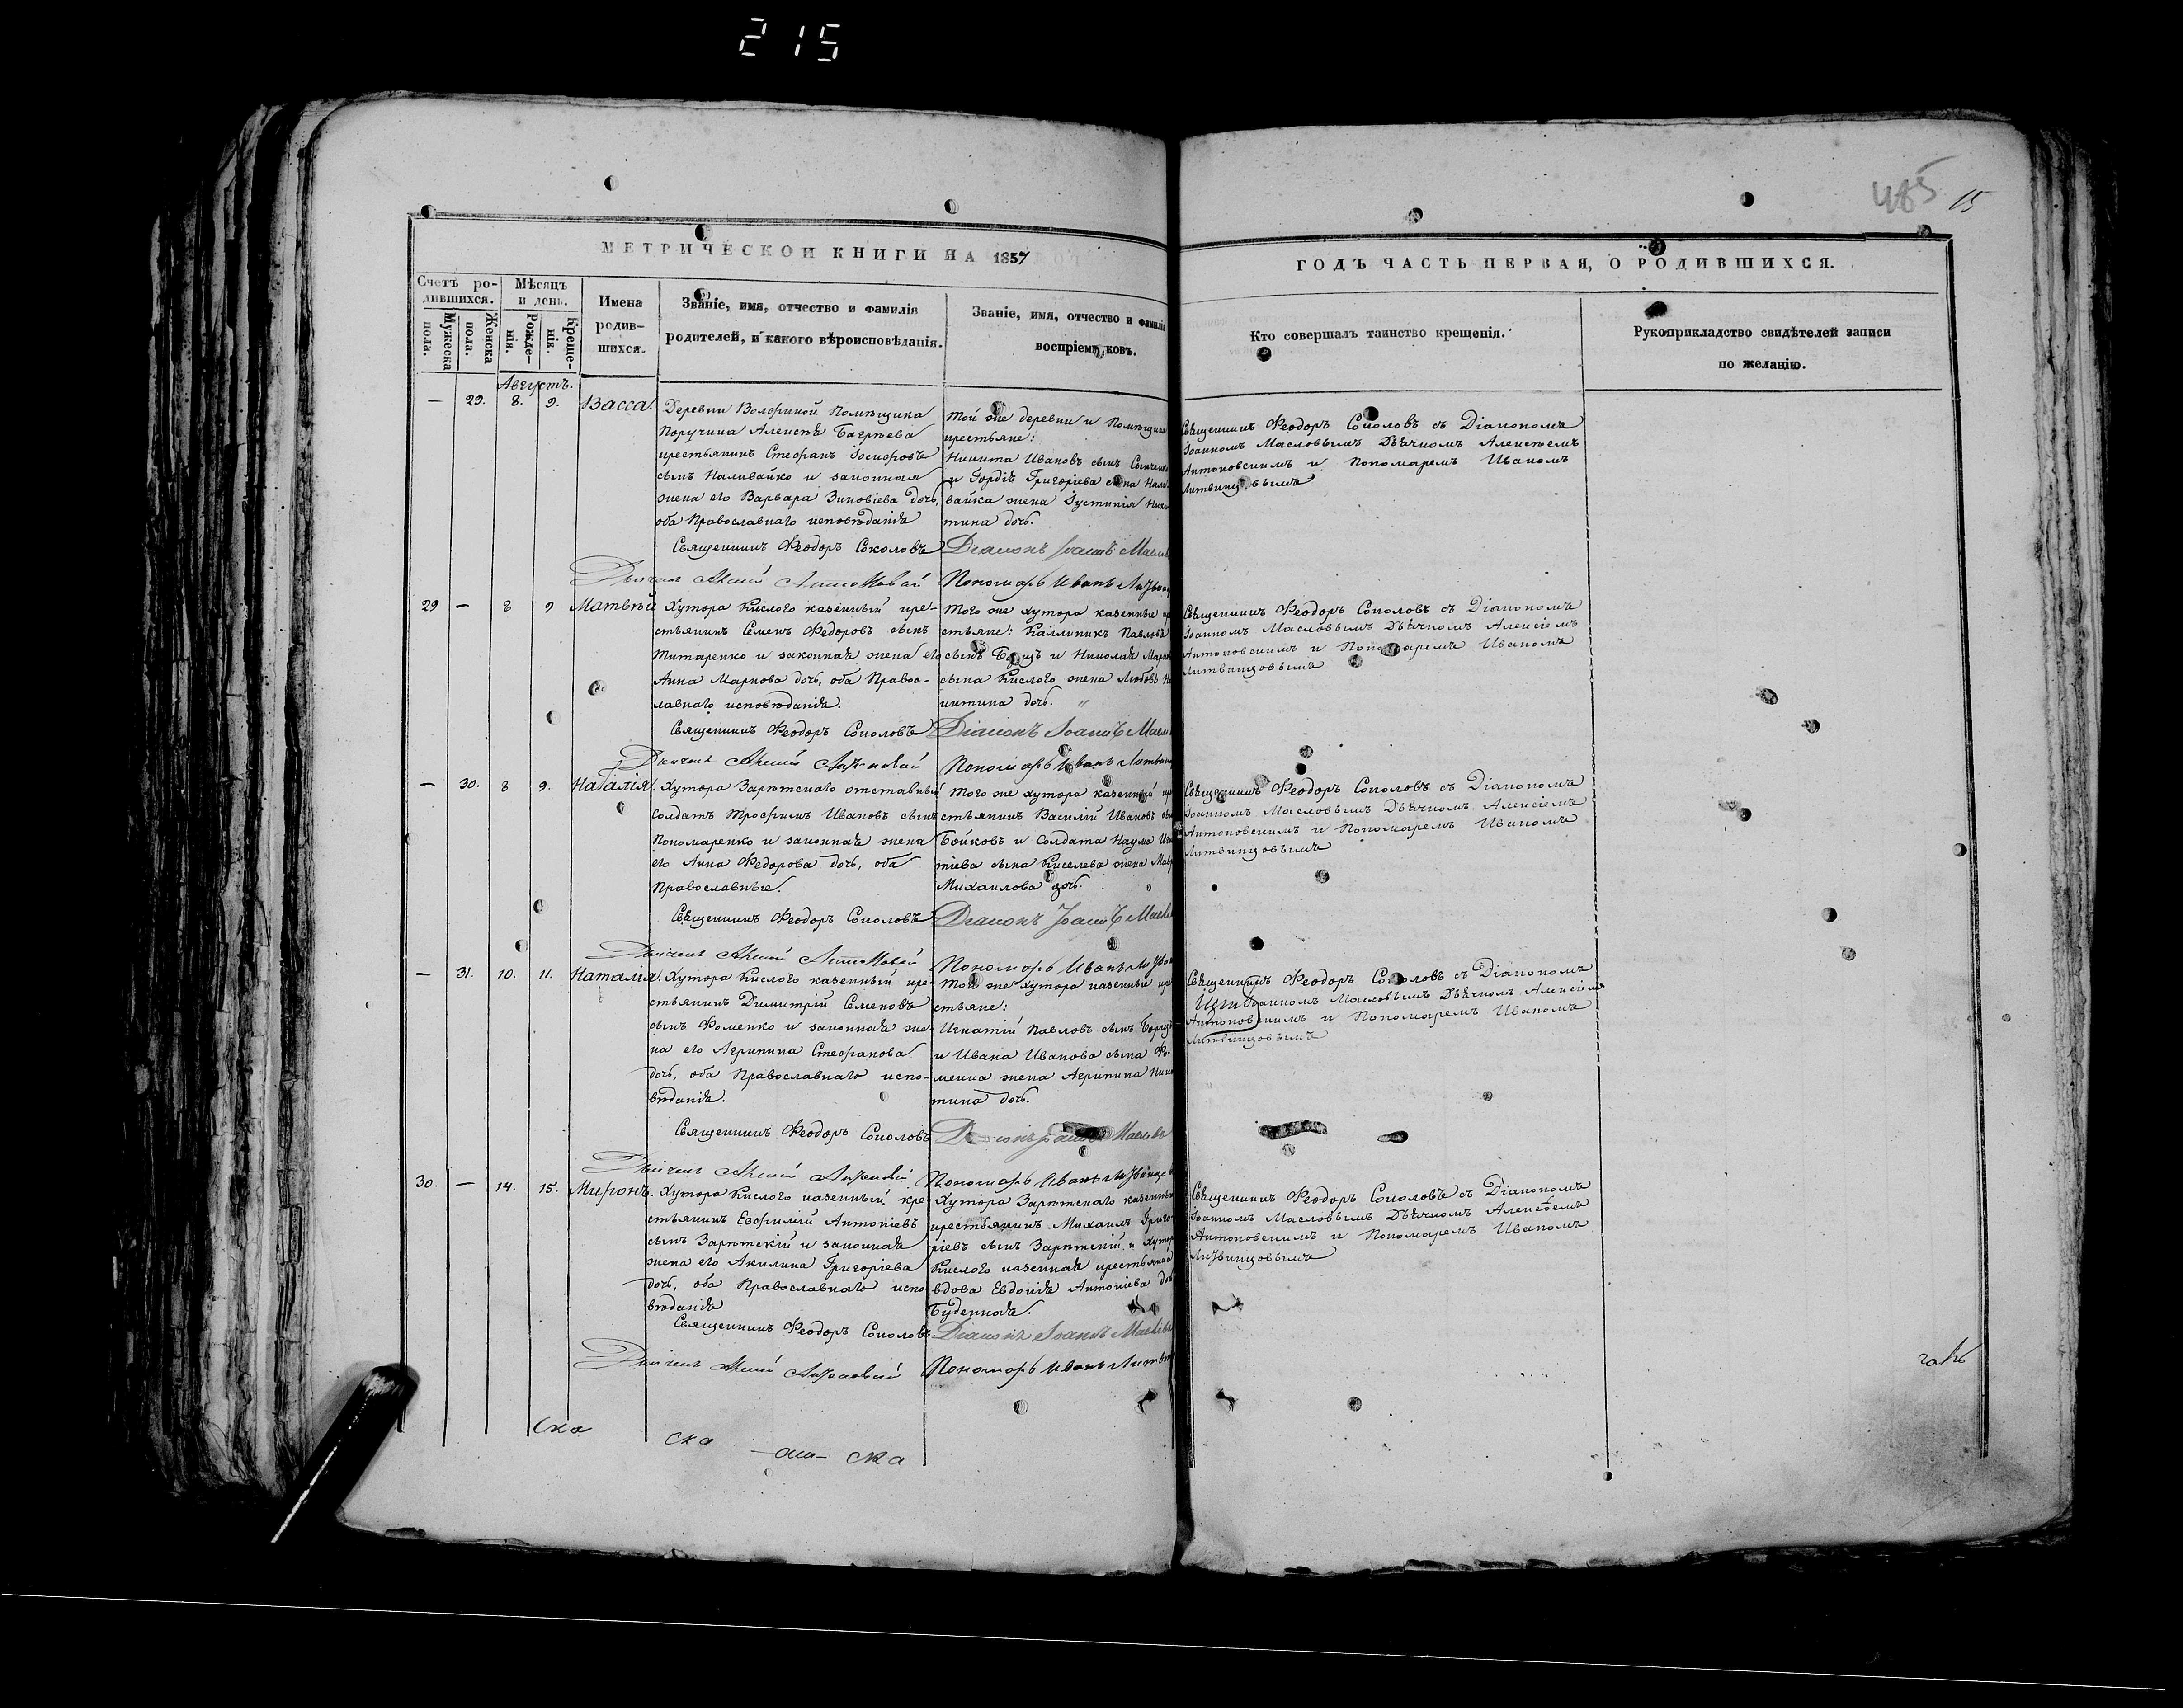 215
485 15
МЕТРИЧЕСКОЙ КНИГИ НА 1857
ГОДЪ ЧАСТЬ ПЕРВАЯ, О РОДИВШИХСЯ.
Счетъ родившихся.
Мужеска пола.
Женска пола.
Мѣсяцъ и день.
Рожденія.
Крещенія.
Имена родившихся.
Званіе, имя, отчество и фамилія
родителей, и какого вѣроисповѣданія.
Званіе, имя, отчество и фамилія
воспріемниковъ.
Кто совершалъ таинство крещенія.
Рукоприкладство свидѣтелей записи
по желанію.
Августъ.
— 29. 8. 9. Васса.
Деревни Волофиной Помѣщика
Поручика Алексѣя Багрѣева
крестьянинъ Стефанъ Іосифовъ
сынъ Наливайко и законная
жена его Варвара Зиновіева дочь,
оба Православнаго исповѣданія
Священникъ Ѳеодоръ Соколовъ
Той же деревни и Помѣщика
крестьяне:
Никита Ивановъ сынъ
и Гордія Григоріева сына Нали
вайка жена Іустинія Ники
тина дочь.
Діаконъ Іоаннъ Масло
Пономарь Иванъ
Священникъ Ѳеодоръ Соколовъ съ Діакономъ
Іоанномъ Масловымъ Дьячкомъ Алексѣемъ
Антоновскимъ и Пономаремъ Иваномъ
Литвинцовымъ
29 — 8 9 Матвѣй
Хутора Кислого казенный кре-
стьянинъ Семенъ Ѳедоровъ сынъ
Титаренко и законная жена его
Анна Маркова дочь, оба Правос-
лавнаго исповѣданія.
Священникъ Ѳеодоръ Соколовъ
Того же хутора казенные кр
стьяне: Каллиникъ Павловъ
сынъ и Николая Марк
сына Кислого жена Любовь Ни
китина дочь.
Діаконъ Іоаннъ Масл
Пономарь Иванъ Литвин
Священникъ Ѳеодоръ Соколовъ съ Діакономъ
Іоанномъ Масловымъ Дьячкомъ Алексіемъ
Антоновскимъ и Пономаремъ Иваномъ
Литвинцовымъ
— 30. 8 9. Наталія.
Хутора Зарѣтскаго отставный
солдатъ Трофимъ Ивановъ сынъ
Пономаренко и законная жена
его Анна Ѳедорова дочь, оба
Православные.
Священникъ Ѳеодоръ Соколовъ
Того же хутора казенный кр
стьянинъ Василій Ивановъ сы
Бойковъ и Солдата Наума Игна
тіева сына Киселева жена Мавр
Михаилова дочь.
Діаконъ Іоаннъ Масло
Пономарь Иванъ
Священникъ Ѳеодоръ Соколовъ съ Діакономъ
Іоанномъ Масловымъ Дьячкомъ Алексіемъ
Антоновскимъ и Пономаремъ Иваномъ
Литвинцовымъ
— 31. 10. 11. Наталія.
Хутора Кислого казенный кре-
стьянинъ Димитрій Семеновъ
сынъ Фоменко и законная же-
на его Агрипина Стефанова
дочь, оба Православнаго испо-
вѣданія.
Священникъ Ѳеодоръ Соколовъ
Того же хутора казенные кре
стьяне:
Игнатій Павловъ сынъ
и Ивана Иванова сына Фо-
менка жена Агрипина Ники
тина дочь.
Пономарь Иванъ
Священникъ Ѳеодоръ Соколовъ съ Діакономъ
Іоанномъ Масловымъ Дьячкомъ Алексіемъ
Антоновскимъ и Пономаремъ Иваномъ
Литвинцовымъ
30. — 14. 15. Миронъ.
Хутора Кислого казенный кре-
стьянинъ Евфимій Антоніевъ
сынъ Зарѣтскій и законная
жена его Акилина Григоріева
дочь, оба Православнаго испо-
вѣданія
Священникъ Ѳеодоръ Соколовъ
Хутора Зарѣтскаго казенный
крестьянинъ Михаилъ Григо-
ріевъ сынъ Зарѣтскій и хутор
Кислого казенная крестьянка
вдова Евдокія Антоніева доч
Буденная.
Діаконъ Іоаннъ Маслов
Пономарь Иванъ Литвин
Священникъ Ѳеодоръ Соколовъ съ Діакономъ
Іоанномъ Масловымъ Дьячкомъ Алексѣемъ
Антоновскимъ и Пономаремъ Иваномъ
Литвинцовымъ
ска
ска
ска